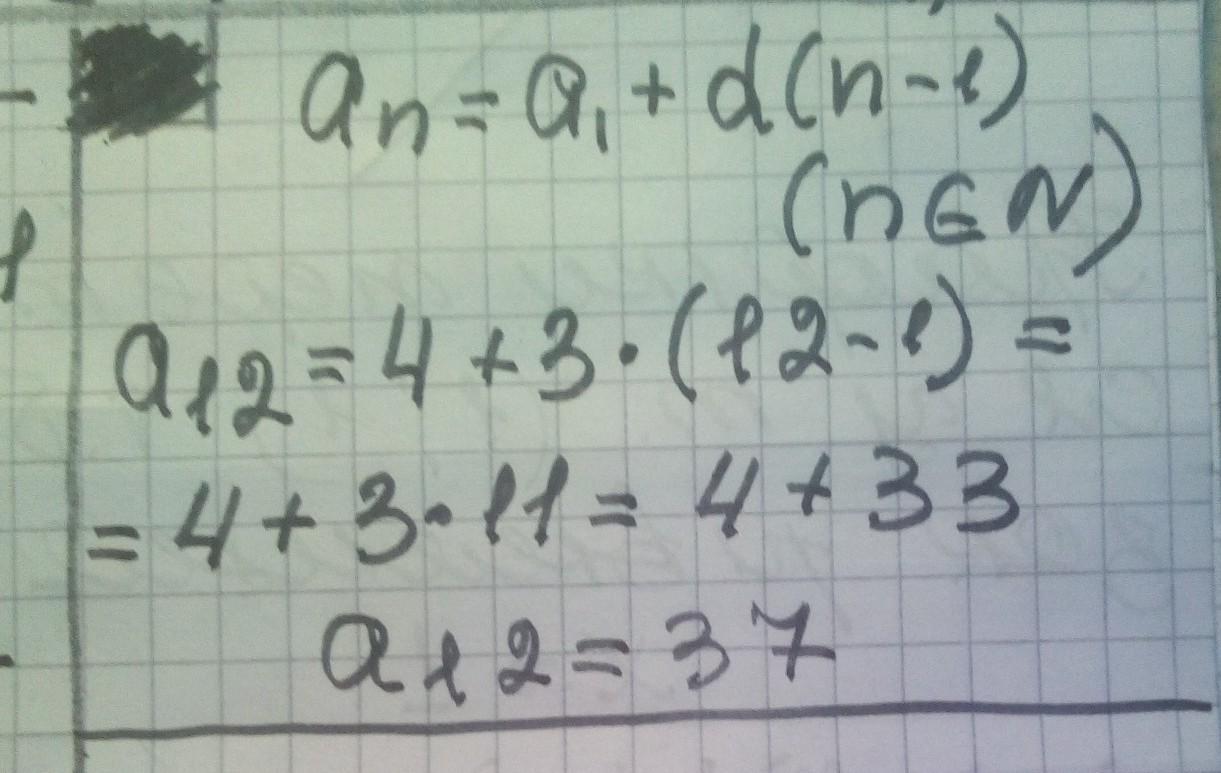 aₙ = a₁ + d(n-1)
(n∈N)
a₁₂ = 4 + 3·(12-1) =
= 4 + 3·11 = 4 + 33
a₁₂ = 37